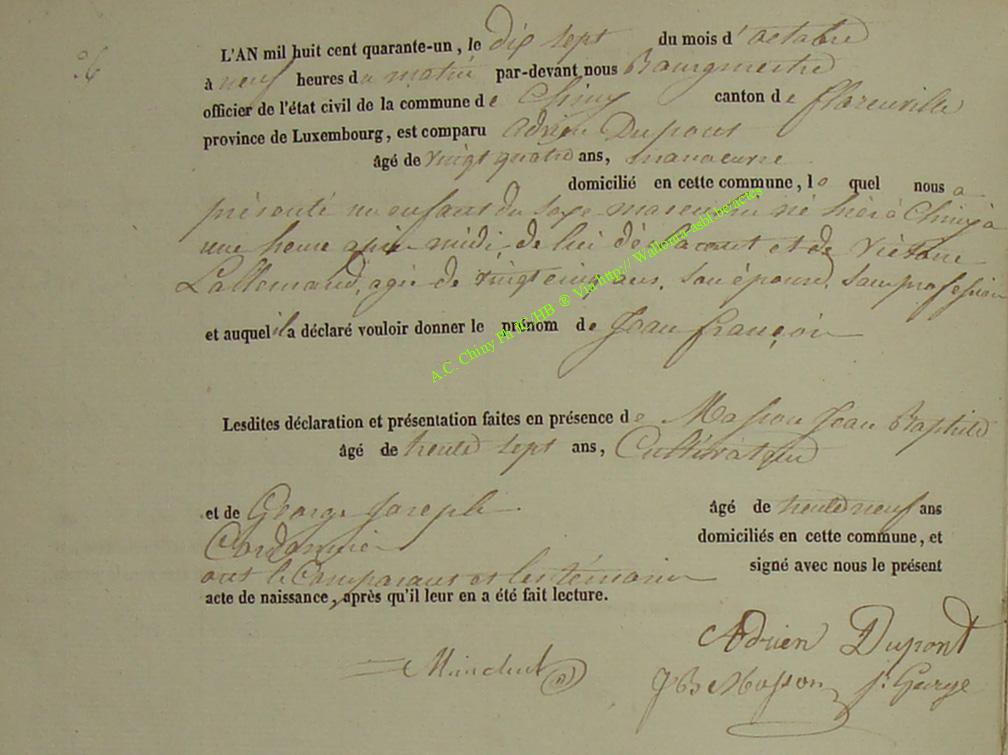 L'AN mil huit cent quarante-un, le dix sept du mois d'octobre
à neuf heures du matin par-devant nous Bourgmestre
officier de l'état civil de la commune de Chiny canton de florenville
province de Luxembourg, est comparu Adrien Dupont
âgé de vingt quatre ans, manoeuvre
domicilié en cette commune, le quel nous a
présenté un enfant du sexe masculin né hier à Chiny à
une heure après-midi de lui déclarant et de
Lallemand, agée de vingt cinq ans, son épouse, sans profession
et auquel il a déclaré vouloir donner le prénom de Jean françois
A.C. Chiny Ph ® Via http:// Wallonia-asbl.be/actes
Lesdites déclaration et présentation faites en présence de Masson Jean Baptiste
âgé de trente sept ans, Cultivateur
et de George Joseph âgé de trente neuf ans
Cordonnier domiciliés en cette commune, et
ont le Comparant et les témoins signé avec nous le présent
acte de naissance, après qu'il leur en a été fait lecture.
Adrien Dupont
JB Masson J. George